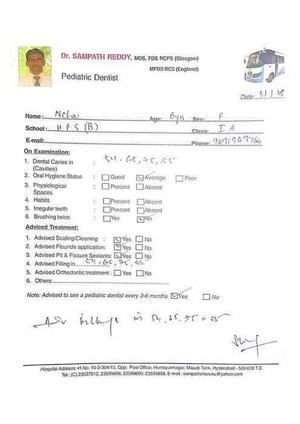 Dr. SAMPATH REDDY, MDS, FDS RCPS (Glasgow)
MFDS RCS (England)
Pediatric Dentist
Date: 3/1/15
Name: Neha Age: 6yrs Sex: F
School: H.P.S (B) Class: I A
E-mail: Phone:
On Examination:
1. Dental Caries in (Cavities) : 54, 65, 75, 85
2. Oral Hygiene Status : Good Average Poor
3. Physiological Spaces : Present Absent
4. Habits : Present Absent
5. Irregular teeth : Present Absent
6. Brushing twice : Yes No
Advised Treatment:
1. Advised Scaling/Cleaning : Yes No
2. Advised Flouride application: Yes No
3. Advised Pit & Fissure Sealants: Yes No
4. Advised Filling in 54, 65, 75, 85
5. Advised Orthodontic treatment : Yes No
6. Others:
Note: Advised to see a pediatric dentist every 3-6 months Yes No
in 54, 65, 75, 85
Hospital Address: H.No. 10-3-304/13, Opp: Post Office, Humayunnagar, Masab Tank, Hyderabad - 500 028 T.S.
Tel: (C) 23537812, E-mail: sampathchenuku@yahoo.com